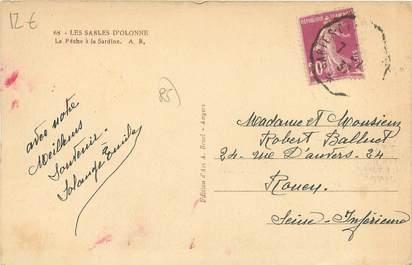 12 €
68 - LES SABLES D'OLONNE
La Pêche à la Sardine. A. B.
(85)
avec notre
Meilleur
Souvenir.
Solange Emile
Edition d'Art A. Bruel - Angers
RÉPUBLIQUE FRANÇAISE
20c
Madame et Monsieur
Robert Balluet
24 - rue D'anvers - 24
Rouen.
Seine-Inférieure